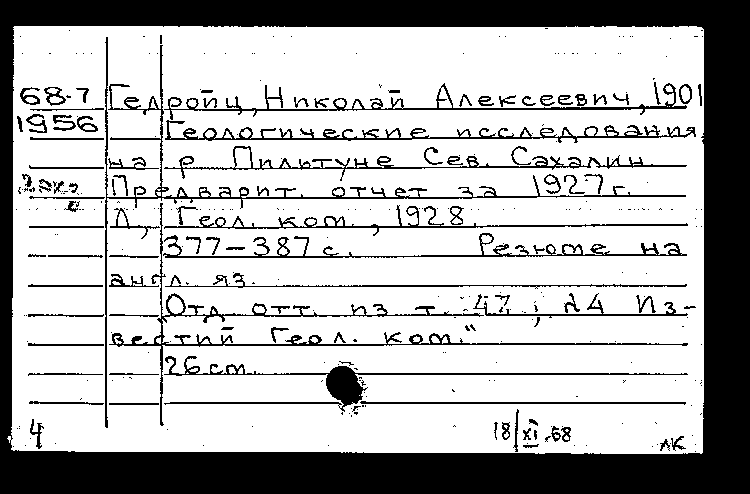 68-7 Гедройц, Николай Алексеевич, 1901
1956 Геологические исследования
на р Пильтуне Сев. Сахалин.
2 экз Предварит. отчет за 1927 г.
Л., Геол. ком., 1928.
377-387 с. Резюме на
англ. яз.
Отд отт. из т. 47, №4 "Из-
вестий Геол. ком."
26 cm.
4 18/XI.68 ЛК